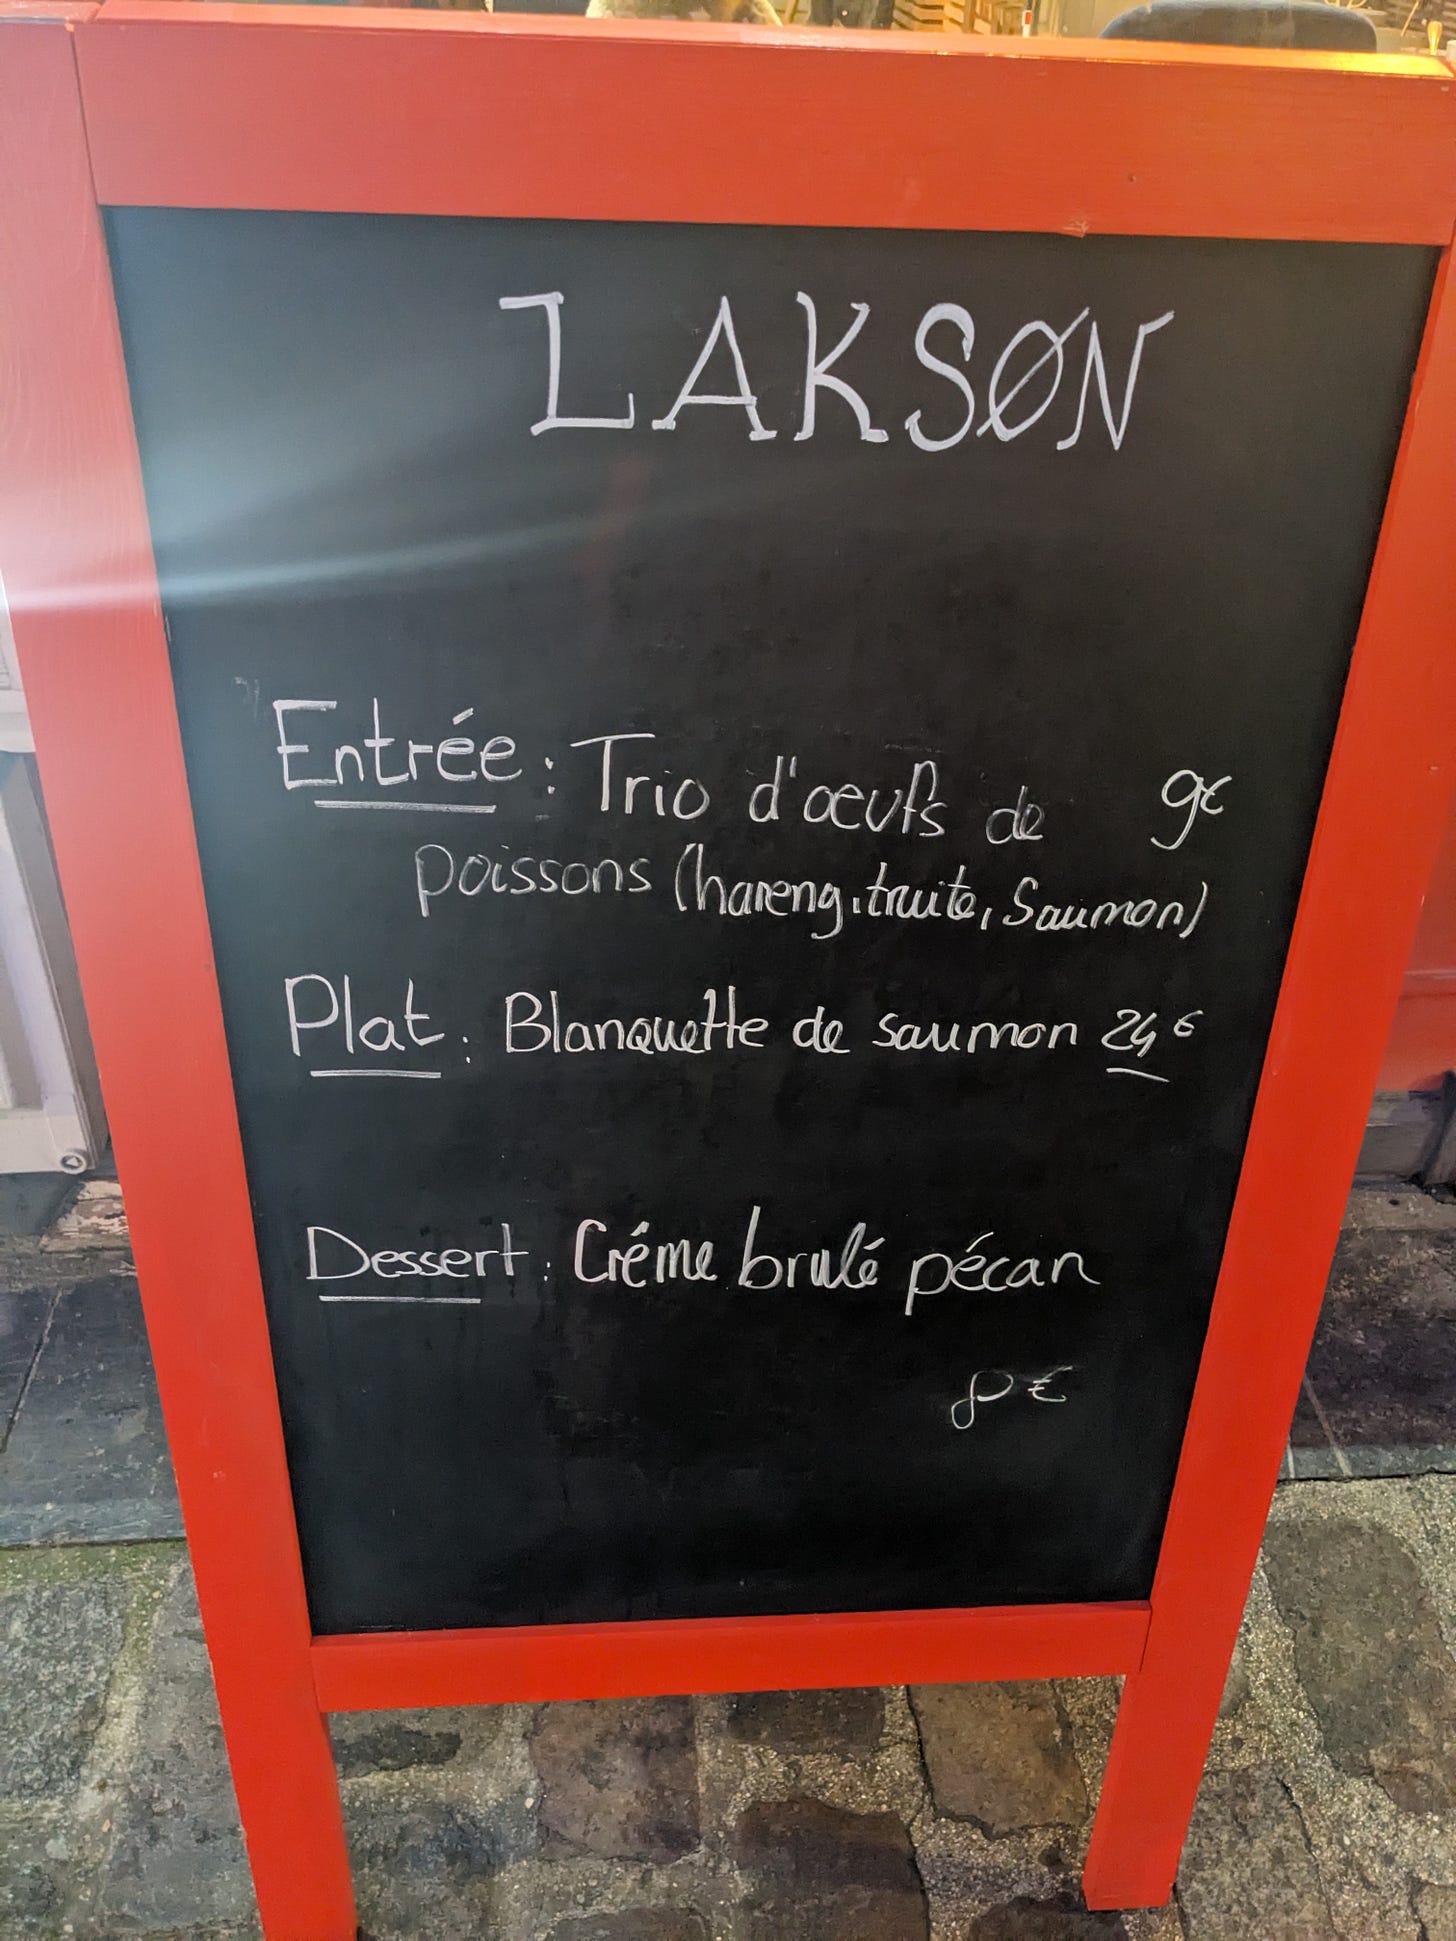 LAKSØN
Entrée : Trio d'œufs de 9€
poissons (hareng, truite, Saumon)
Plat : Blanquette de saumon 24€
Dessert : Créme brulé pécan
8€